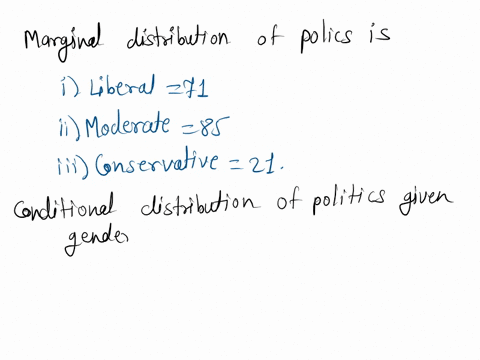 Marginal distribution of polics is
i) Liberal = 71
ii) Moderate = 85
iii) Conservative = 21.
Conditional distribution of politics given
gender